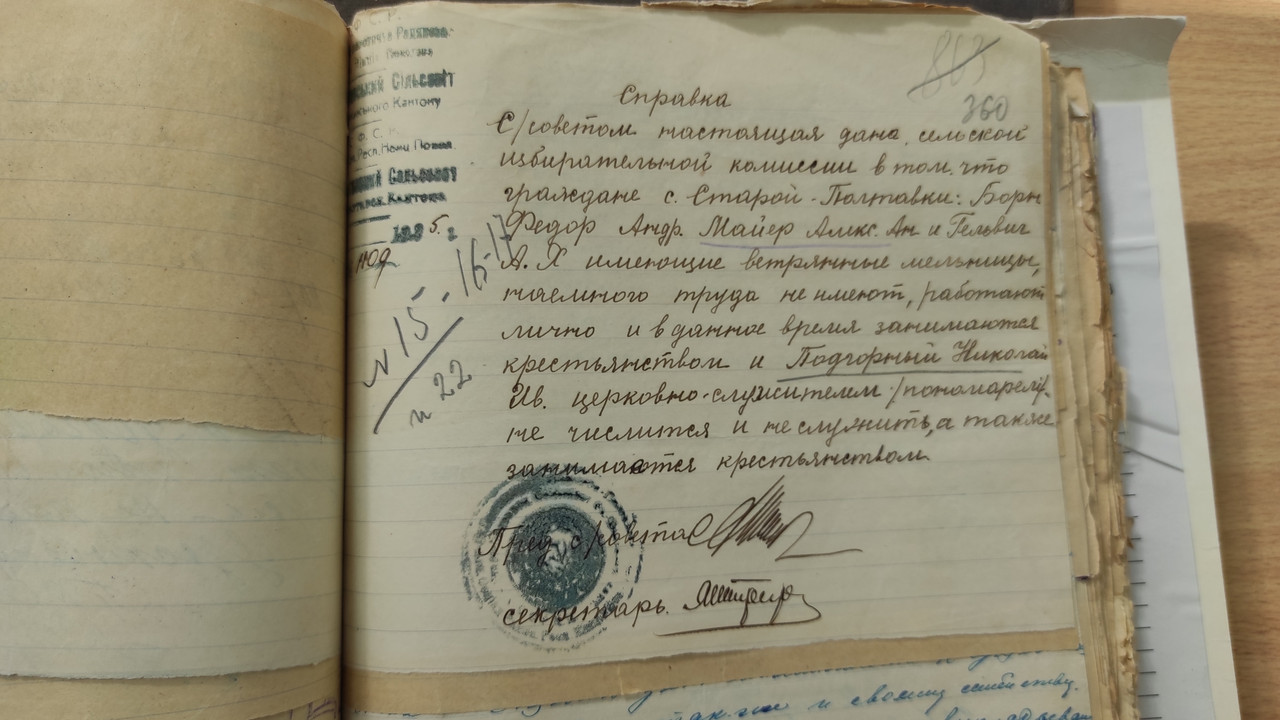 Ф. С. Р.
Сільсовіт
Кантону
Ф. С. Р.
Респ. Нем. Повол.
Сельсовет
Кантона
193 5. г.
863
360
Справка
С/советом настоящая дана сельской
избирательной комиссии в том, что
граждане с. Старой-Полтавки: Борн
Федор Андр. Майер Алекс. Ан и Гельвич
А. Х имеющие ветрянные мельницы,
наемного труда не имеют, работают
лично и в данное время занимаются
крестьянством и Подгорный Николай
Ив. церковно-служителем /пономарем/
не числится и не служить, а также
занимается крестьянством.
N 15 - 16-17
и 22
Пред с/совета
секретарь.
и своему семейству.